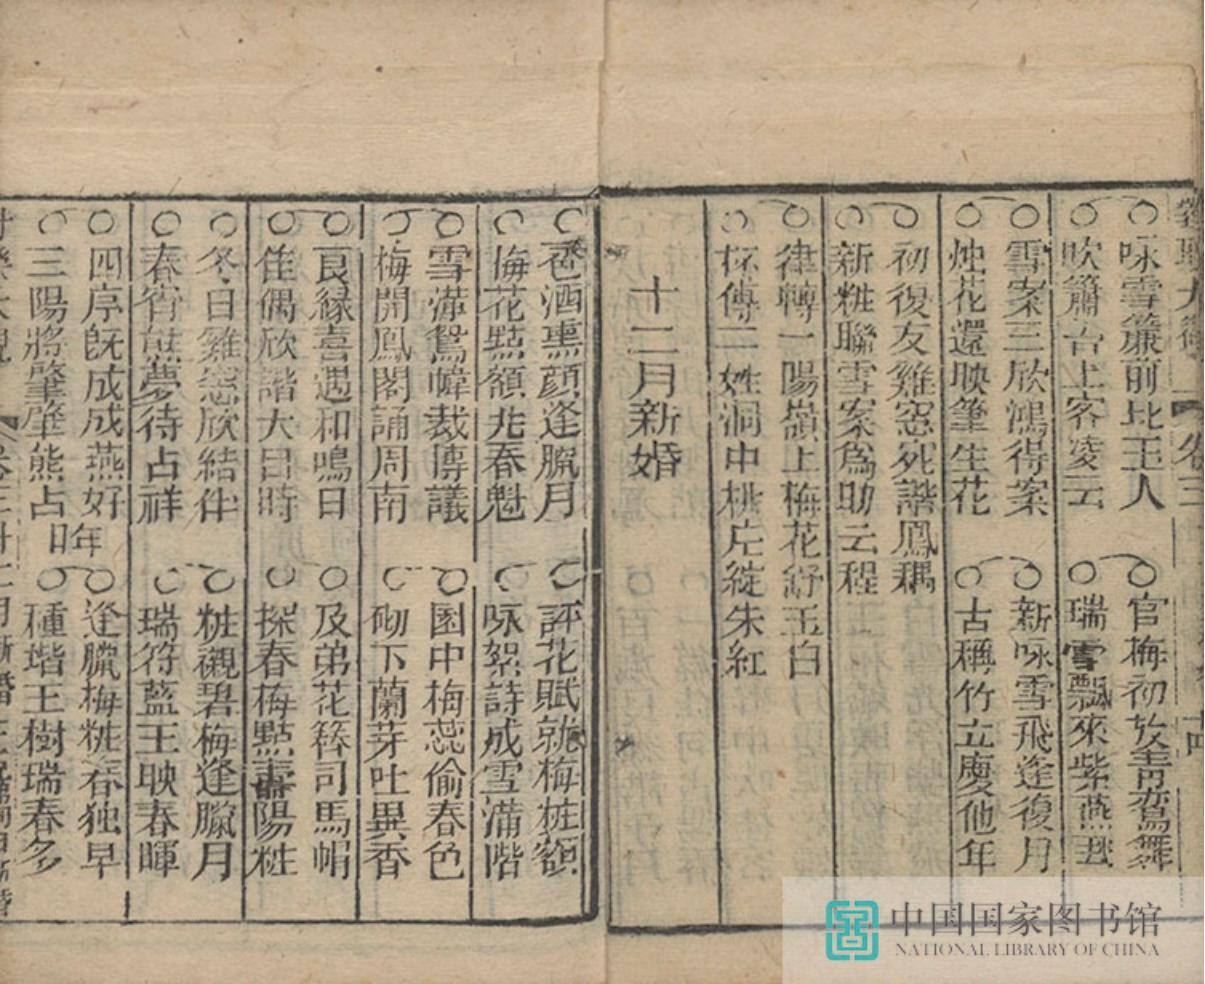 卷三 十四
咏雪簾前比玉人 官梅初放青鸞舞
吹簫台上客凌云 瑞雪飄來紫燕飛
雪案三欣鴻得案 新咏雪飛逢復月
烛花還映筆生花 古稱竹立慶他年
初復友雞窓宛諧鳳耦
新粧聯雪案爲助云程
律轉一陽嶺上梅花舒玉白
杯傳二姓洞中桃片綻朱紅
十二月新婚
卺酒熏顔逢臘月 評花賦就梅粧額
梅花點額兆春魁 咏絮詩成雪滿階
雪滿鴛幃裁傳議 園中梅蕊偷春色
梅開鳳閣誦周南 砌下蘭芽吐異香
良縁喜遇和鳴日 及弟花簪司馬帽
佳偶欣諧大吕時 探春梅點壽陽粧
冬日雞窓欣結伴 粧觀碧梅逢臘月
春宵熊夢待占祥 瑞符藍玉映春暉
四序既成成燕好年 逢臘梅粧春独早
三陽將肇肇熊占日 種堦玉樹瑞春多
中国国家图书馆
NATIONAL LIBRARY OF CHINA